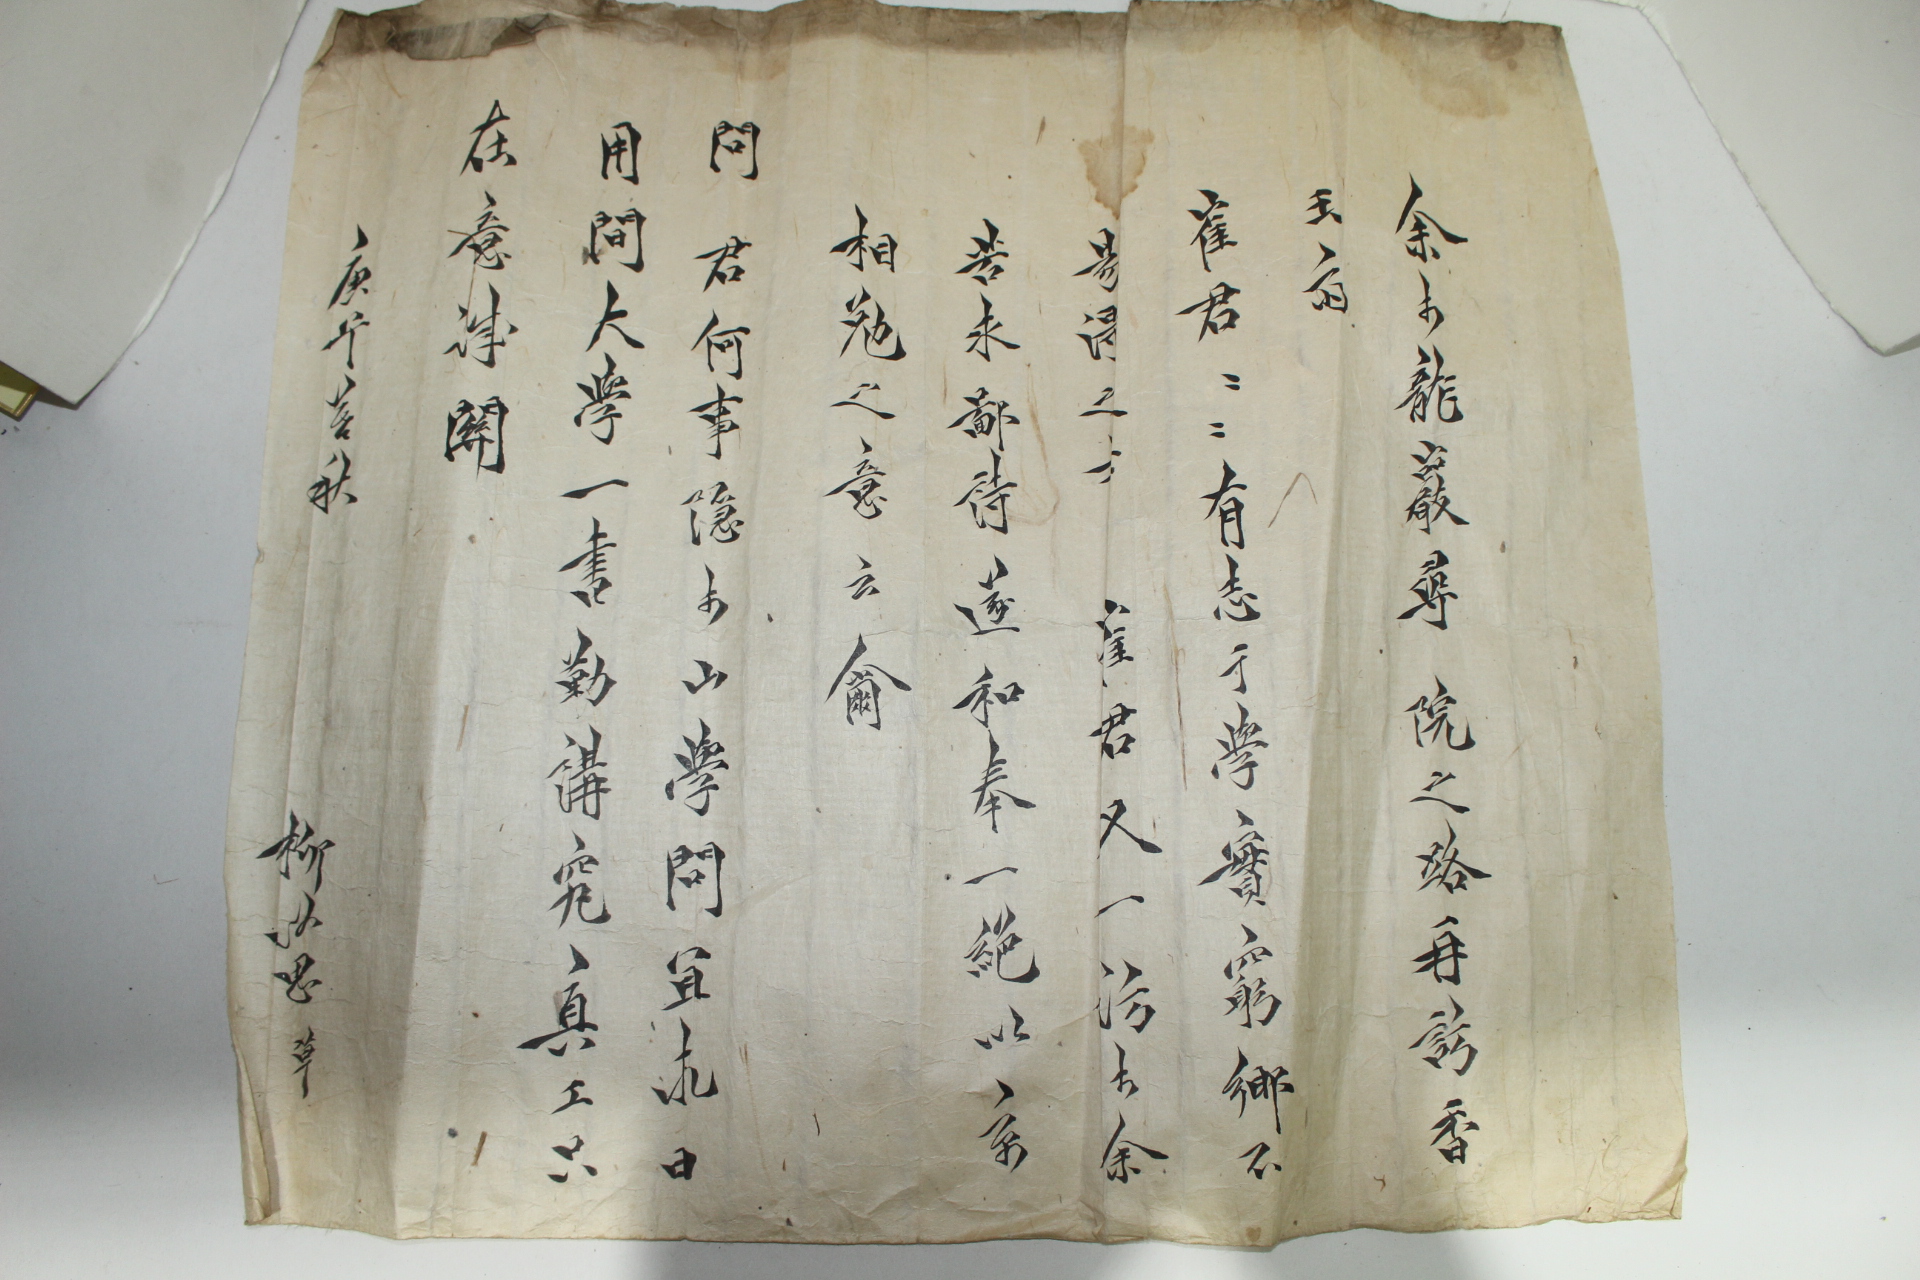 余於龍巖尋 院之路再訪香
玉翁
崔君〻〻有志于學實窮鄉不
易得之士 崔君又一訪於余
苦求鄙詩遂和奉一絕以示
相勉之意云爾
問 君何事隱於山學問宜求日
用間大學一書勤講究眞工只
在意誠關
庚午菩秋
柳思草